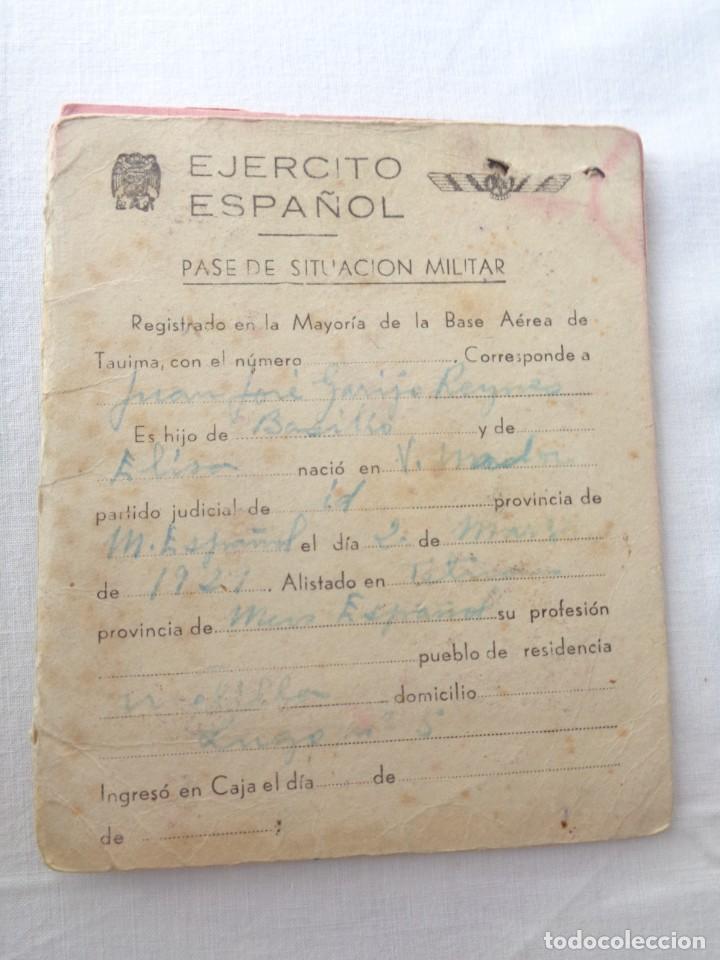 EJERCITO
ESPAÑOL
PASE DE SITUACION MILITAR
Registrado en la Mayoría de la Base Aérea de
Tauima, con el número . Corresponde a
Juan José Garijo Reynés
Es hijo de Basilio y de
Elisa nació en V.
partido judicial de id provincia de
M. Español el día 2 de Marzo
de 1921. Alistado en
provincia de Español su profesión
pueblo de residencia
domicilio
Lugo nº 5
Ingresó en Caja el día de
de
todocoleccion